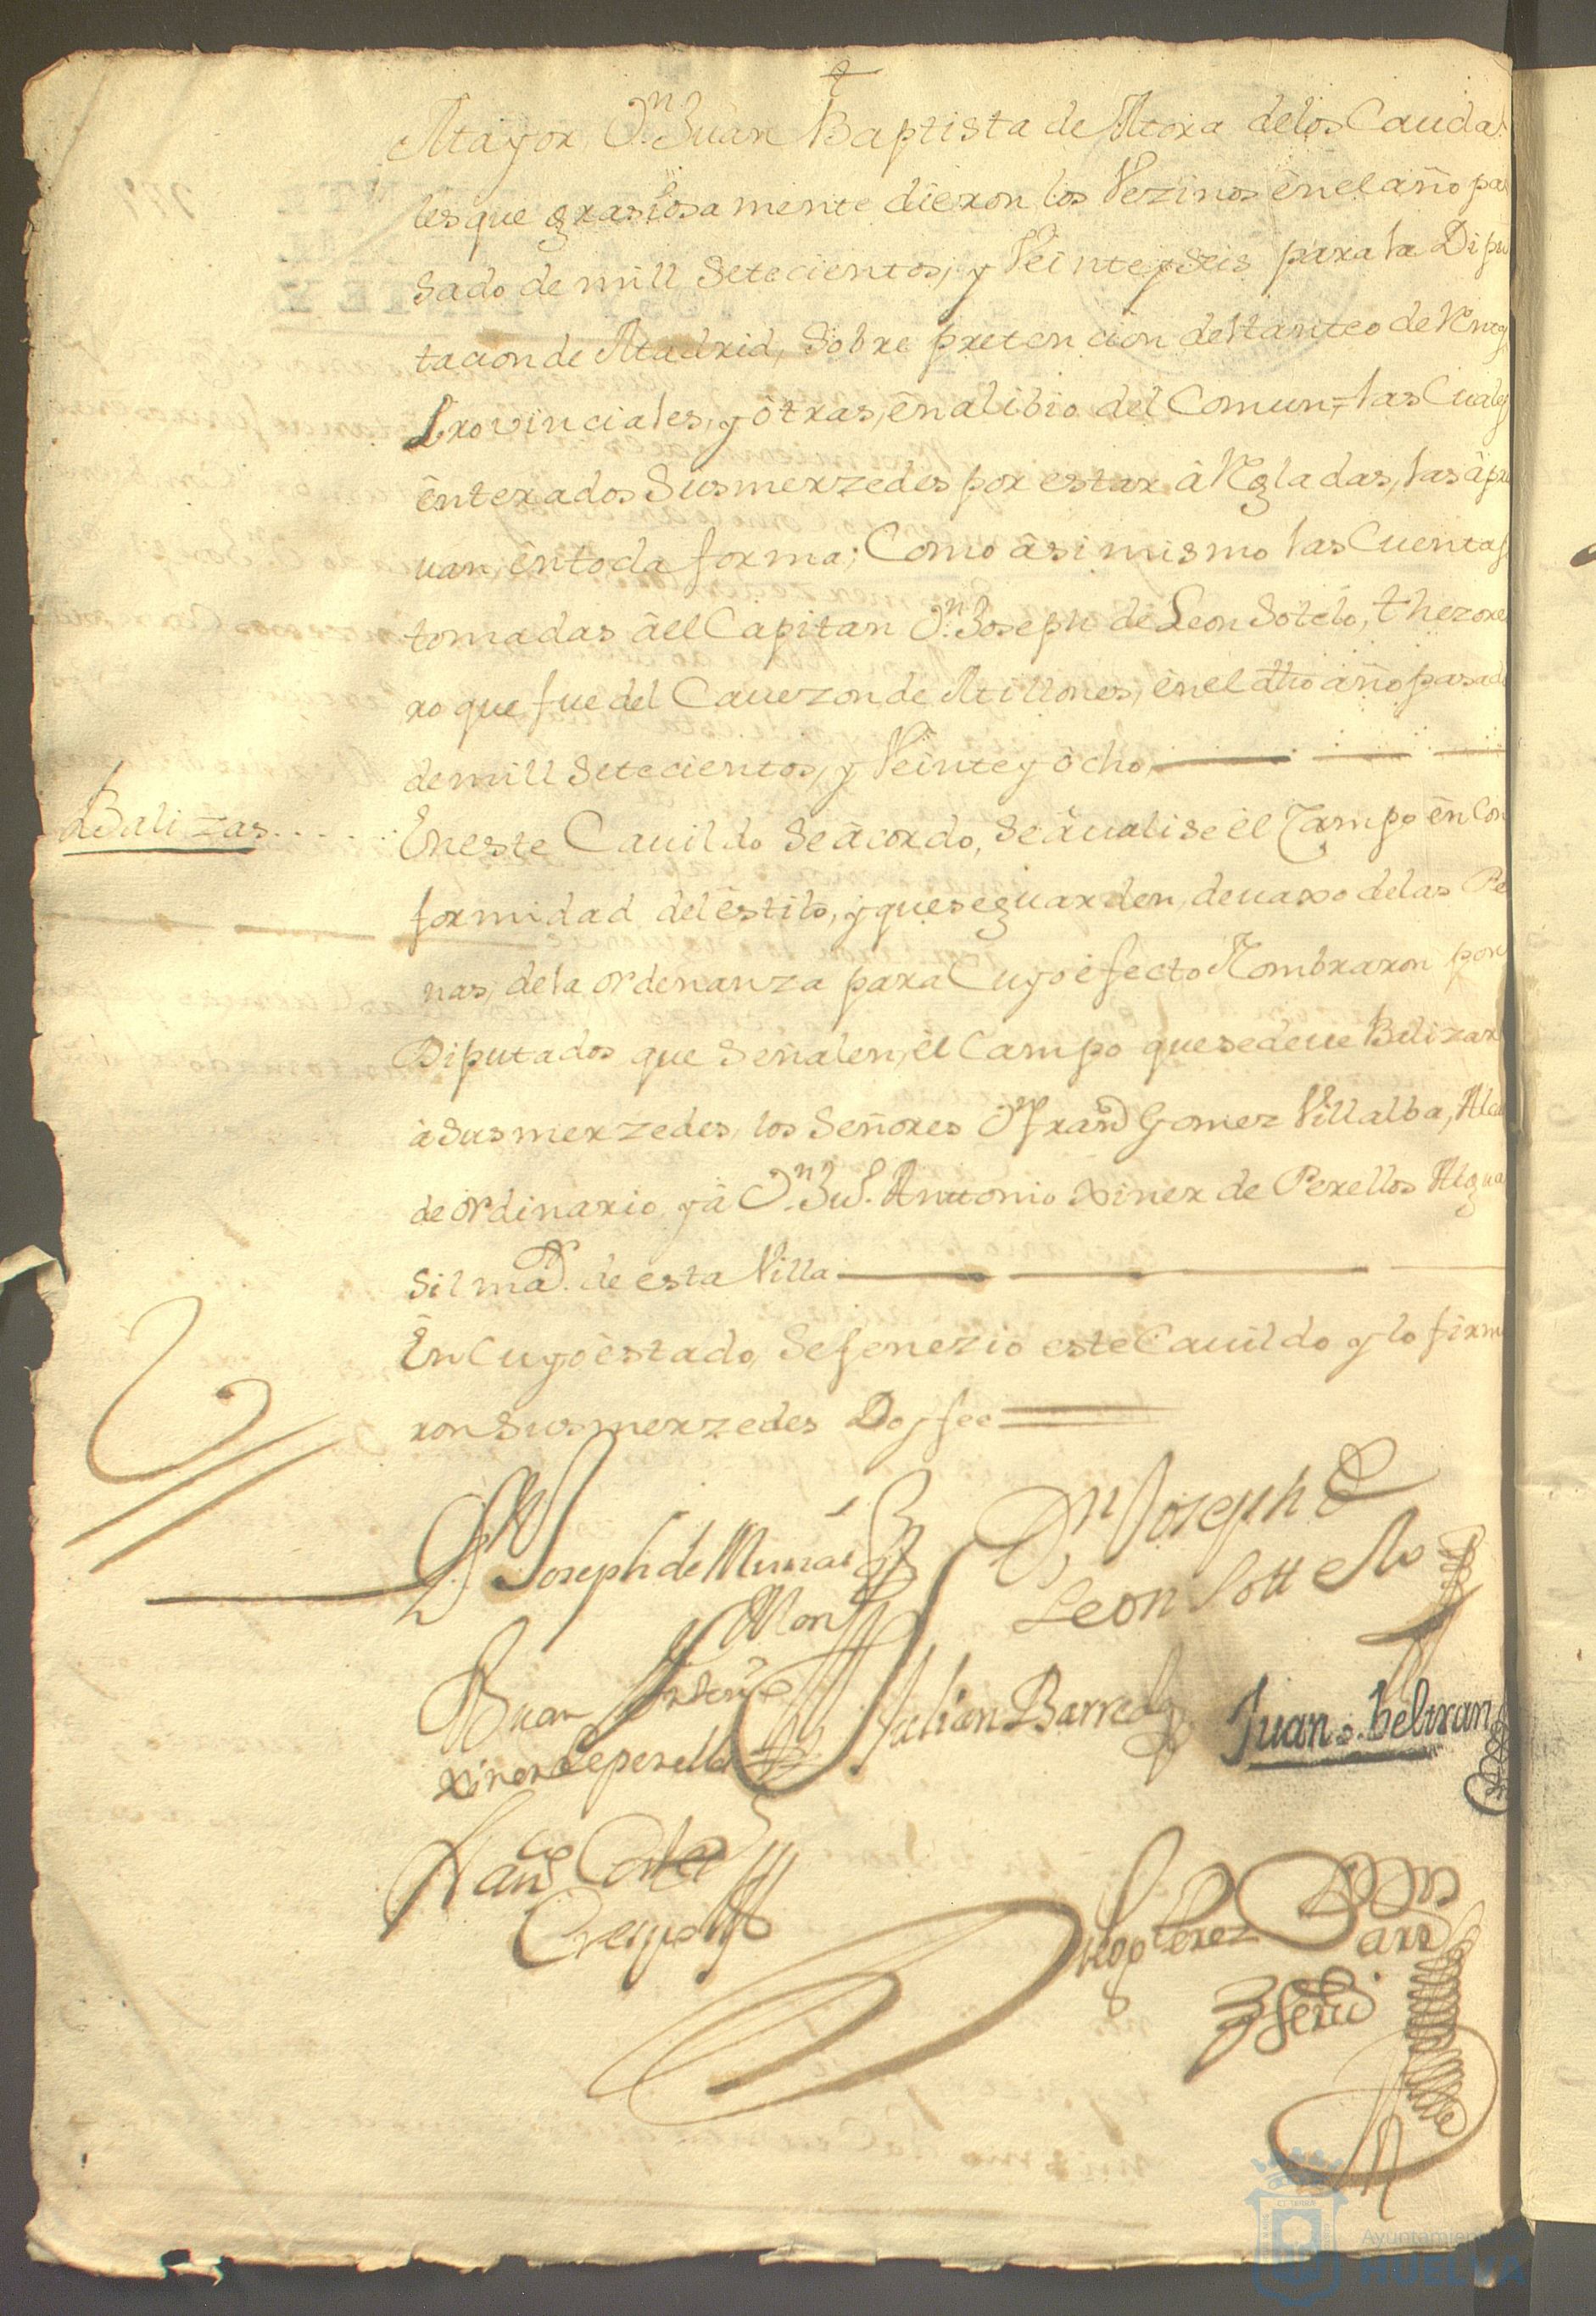 Mayor, Dn. Juan Baptista de Mora delos Cauda
les que grasiosamente dieron los Vezinos ênel año pa
sado de mill Setecientos, y Veinte y Seis para la Dipu
tacion de Madrid, Sobre pretencion del tanteo de Rentas
Provinciales, y òtras, ên alibio del Comun, = las Cuales
ênterados Susmerzedes por estar â Regladas, las âpru
uan, ên toda forma; Como âsi mismo las Cuentas
tomadas âel Capitan Dn. Joseph de Leon Sotelo, thezore
ro que fue del Cauezon de Millones, ênel dho año pasado
de mill Setecientos, y Veinte y ôcho,
Balizas
En este Cauildo Se âcordo, Se âualise êl Campo ên Con
formidad del êstilo, y quese guarden, deuaxo delas Pe
nas, dela ordenanza para Cuyo êfecto Nombraron por
Diputados que Señalen, êl Campo que sedeue Belizar
à Susmerzedes, los Señores Dn Franco Gomez Villalba, Alcal
de ôrdinario, y â Dn. Ju. Antonio Xiner de Perellos Algua
sil mar. de esta Villa
En Cuyo êstado, Se fenezio este Cauildo y lo firma
ron Susmerzedes Doy fee
Dn Joseph de
Dn Joseph de
Leon Sottelo
Juan Antonio
Xiner de perellos
Julian Barreda
Juan beltran
Franco Cortes
Crespo
Diego Perez
Ayuntamiento
HUELVA